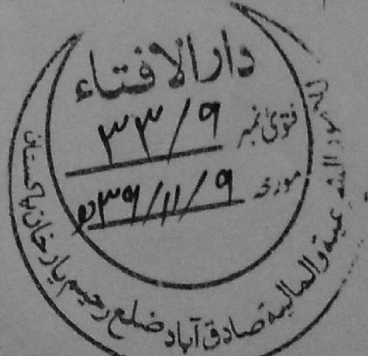 دارالافتاء
فتویٰ نمبر ۳۳/۹
مورخہ ۳۹/۱۱/۹
والمالیة صادق آباد ضلع رحیم یار خان پاکستان